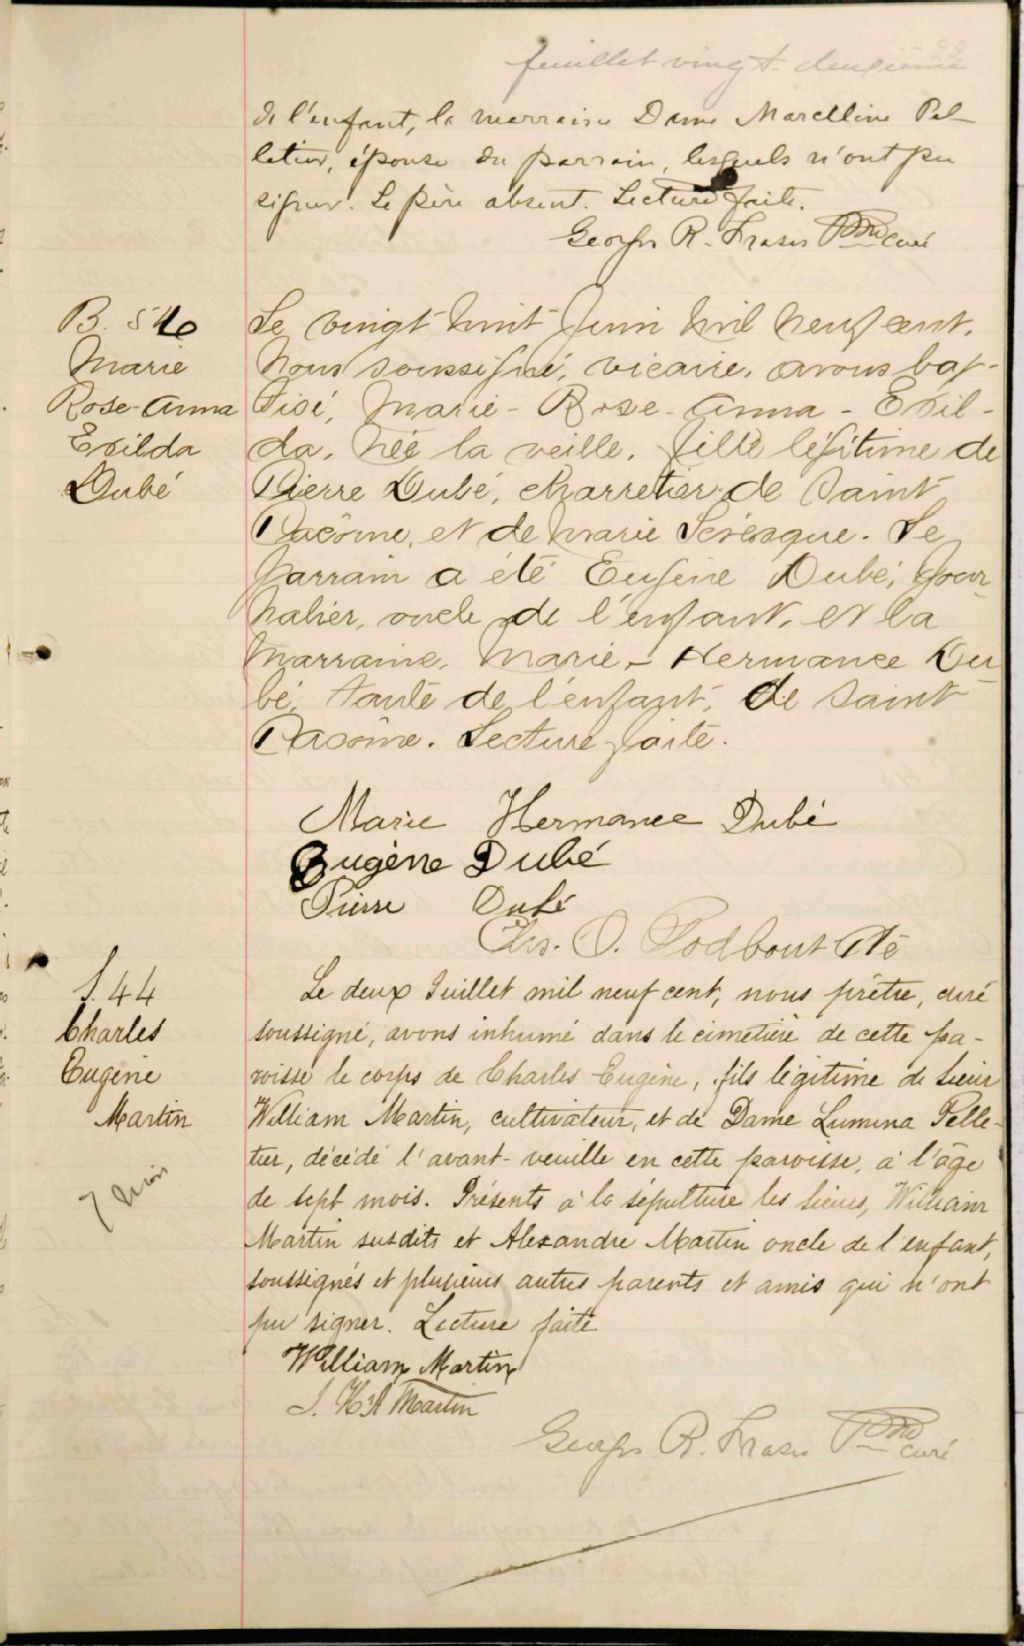 feuillet vingt-deuxième
de l'enfant, la marraine Dame Marcelline Pel-
letier, épouse du parrain, lesquels n'ont pu
signer. Le père absent. Lecture faite.
Georges R. Fraser Ptre curé
B. 540
Marie
Rose-Anna
Exilda
Dubé
Le vingt huit Juin mil neuf cent,
Nous soussigné, vicaire, avons bap-
tisé, Marie-Rose-Anna-Exil-
da, née la veille, fille légitime de
Pierre Dubé, charretier de Saint
Pacôme, et de Marie Lévesque. Le
parrain a été Eugène Dubé, jour-
nalier, oncle de l'enfant, et la
marraine, Marie-Hermance Du-
bé, tante de l'enfant, de Saint
Pacôme. Lecture faite.
Marie Hermance Dubé
Eugène Dubé
Pierre Dubé
Chs. O. Godbout Ptre
S. 44
Charles
Eugène
Martin
7 mois
Le deux Juillet mil neuf cent, nous prêtre, curé
soussigné, avons inhumé dans le cimetière de cette pa-
roisse le corps de Charles Eugène, fils légitime de Sieur
William Martin, cultivateur, et de Dame Lumina Pelle-
tier, décédé l'avant-veille en cette paroisse, à l'âge
de sept mois. Présents à la sépulture les Sieurs, William
Martin susdits et Alexandre Martin oncle de l'enfant,
soussignés et plusieurs autres parents et amis qui n'ont
pu signer. Lecture faite
William Martin
Martin
Georges R. Fraser Ptre curé